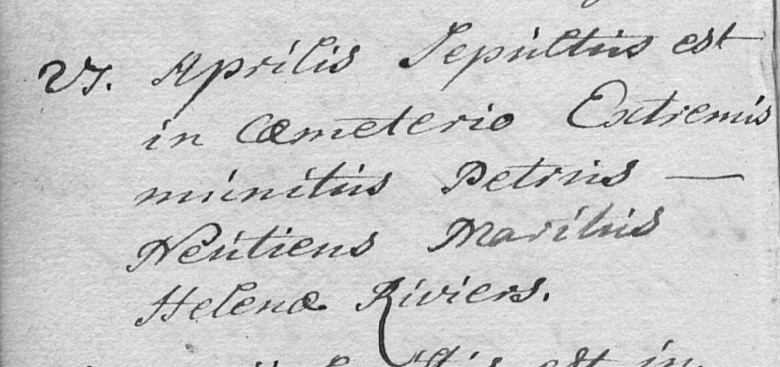 27. Aprilis Sepultus est
in Cœmeterio Extremis
munitus Petrus —
Neutiens Maritus
Helenæ Riviers.
est in